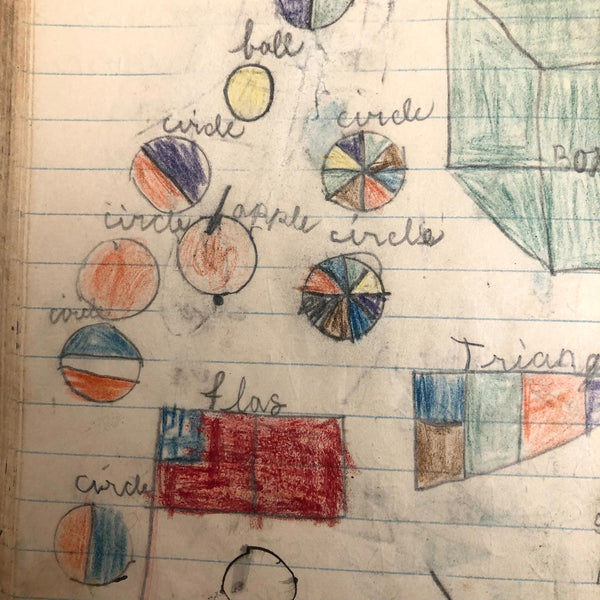 ball
circle
circle
Box
circle
apple
circle
circle
Triang
flag
circle